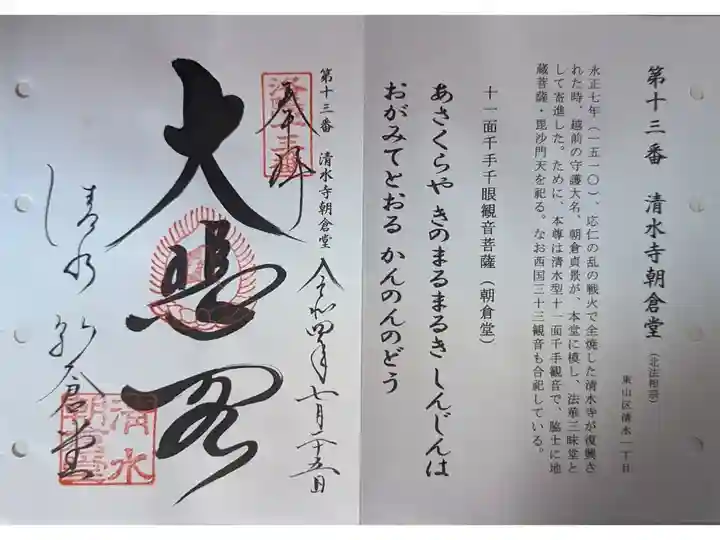 第十三番 清水寺朝倉堂（北法相宗）
東山区清水一丁目
永正七年（一五一〇）、応仁の乱の戦火で全焼した清水寺が復興さ
れた時、越前の守護大名、朝倉貞景が、本堂に模し、法華三昧堂と
して寄進した。ために、本尊は清水型十一面千手観音で、脇士に地
蔵菩薩・毘沙門天を祀る。なお西国三十三観音も合祀している。
十一面千手千眼観音菩薩（朝倉堂）
あさくらや きのまるまるき しんじんは
おがみてとおる かんのんのどう
第十三番 清水寺朝倉堂
令和四年七月二十五日
奉拝
大悲閣
清水 朝倉堂
清水
朝倉堂